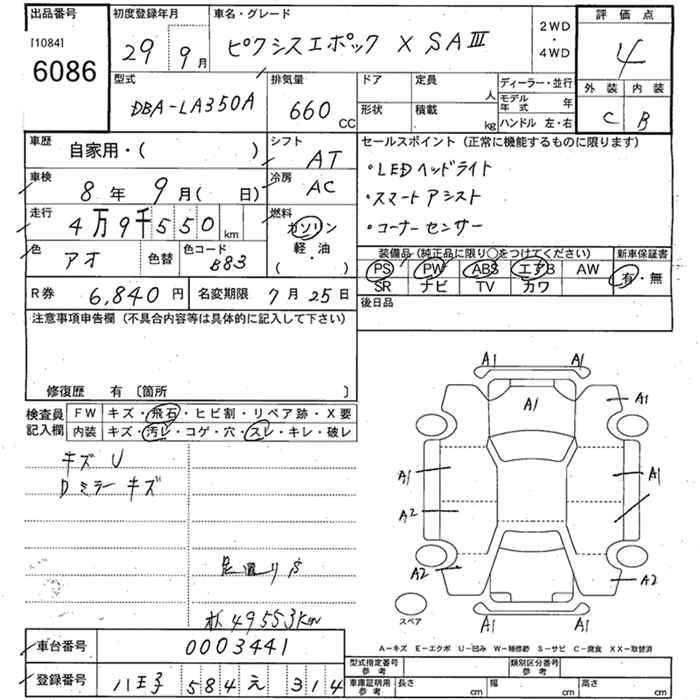 出品番号 初度登録年月 車名・グレード 2WD・4WD 評価点
[1084] 6086 29 9月 ピクシスエポック X SAⅢ 4
型式 排気量 ドア 定員 人 ディーラー・並行 外装 内装
DBA-LA350A 660 CC 形状 積載 kg モデル年式 年 ハンドル 左・右 C B
車歴 自家用・( ) シフト AT セールスポイント(正常に機能するものに限ります)
車検 8年 9月( 日) 冷房 AC ・LEDヘッドライト
・スマートアシスト
走行 4万9千550km 燃料 ガソリン・軽油 ( ) ・コーナーセンサー
色 アオ 色替 色コード B83 装備品(純正品に限り○をつけてください) 新車保証書
PS PW ABS エアB AW 有・無
R券 6,840円 名変期限 7月25日 SR ナビ TV カワ
注意事項申告欄(不具合内容等は具体的に記入して下さい) 後日品
修復歴 有 〔箇所 〕
検査員記入欄 FW キズ・飛石・ヒビ割・リペア跡・X要
内装 キズ・汚レ・コゲ・穴・スレ・キレ・破レ
キズ U
Dミラーキズ
49553km
A1 A1
A1 A1
A1 A1
A2
A2 A2
A1 A1
スペア
A-キズ E-エクボ U-凹み W-補修跡 S-サビ C-腐食 XX-取替済
車台番号 0003441 型式指定番号 参考 類別区分番号 参考
登録番号 八王子 584 え 314 車庫証明用 参考 長さ cm 幅 cm 高さ cm